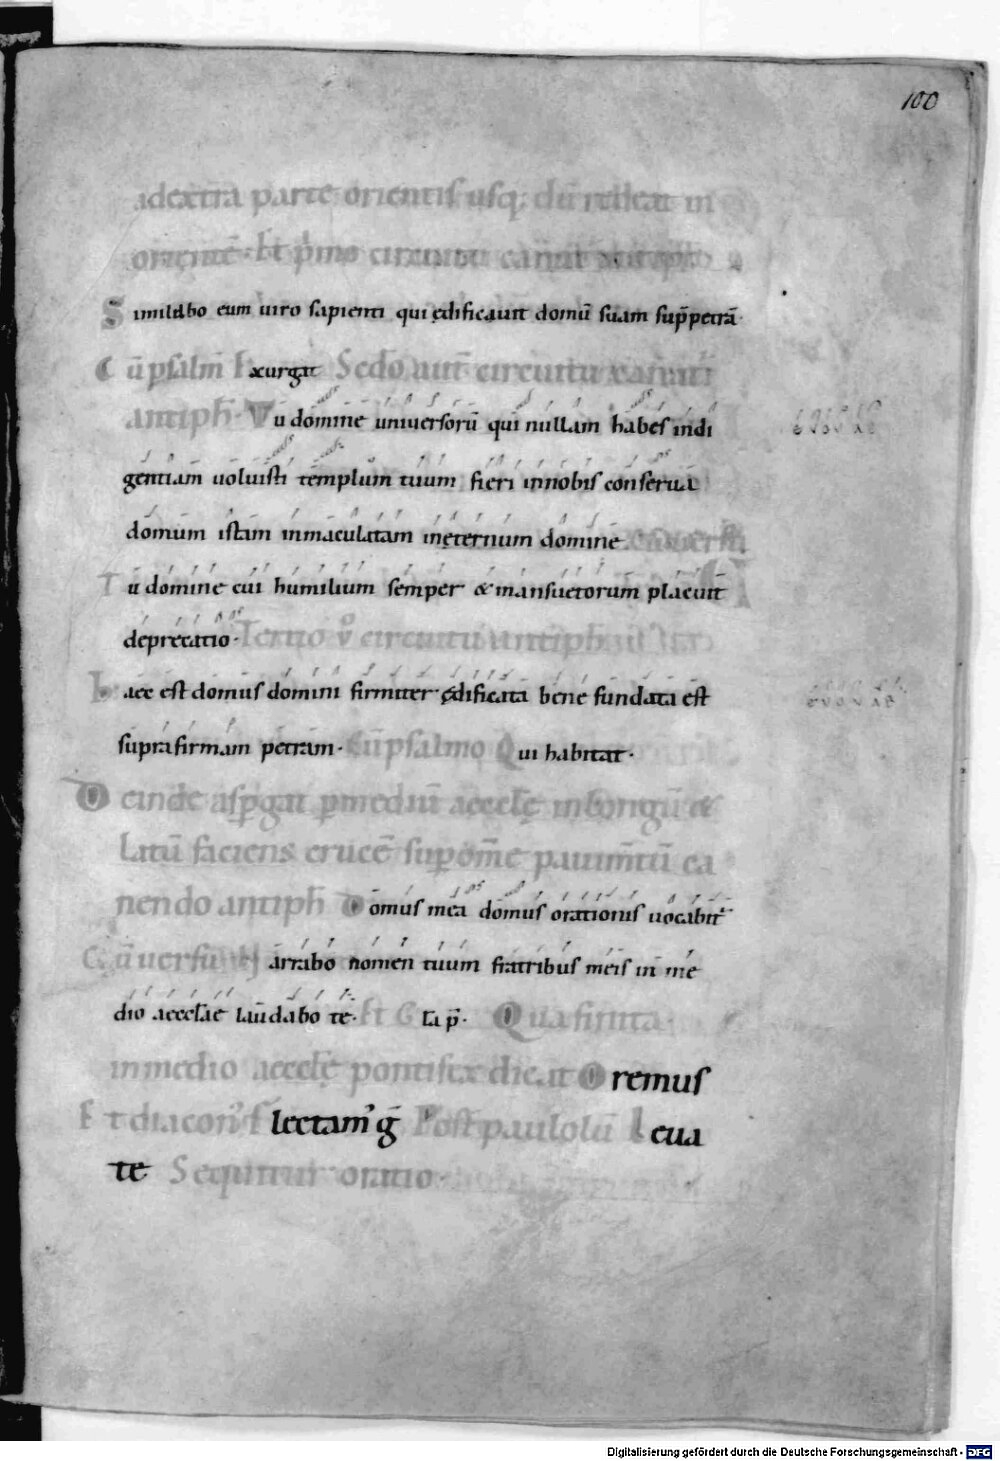 100
adextra parte orientis usq; dū redeat in
orientē. Et p̄mo circuitu canat
Similabo eum viro sapienti qui ędificavit domū suam sup̄petrā.
Cū psalm̄ Exurgat Sedo aut̄ circuitu
antiph̄. Tu domine universorū qui nullam habes indi
gentiam voluisti templum tuum fieri innobis conserva
domum istam inmaculatam inęternum domine
Tu domine cui humilium semper & mansuetorum placuit
deprecatio. Tertio v̊ circuitu antiph̄
Haec est domus domini firmiter ędificata bene fundata est
supra firmam petram. Cū psalmo Qui habitat.
Deinde asp̄gat p̄ mediū aecclę in longū &
latū faciens crucē sup om̄e pavim̄tū ca
nendo antiph̄ Domus mea domus orationis vocabit̄
Cū versu Narrabo nomen tuum fratribus meis in me
dio aecclae laudabo te. Et G la p̄. Qua finita.
in medio aecclę pontifex dicat Oremus
Et diacon' Flectam' ḡ Post paululū Leva
te Sequitur oratio.
Digitalisierung gefördert durch die Deutsche Forschungsgemeinschaft - DFG